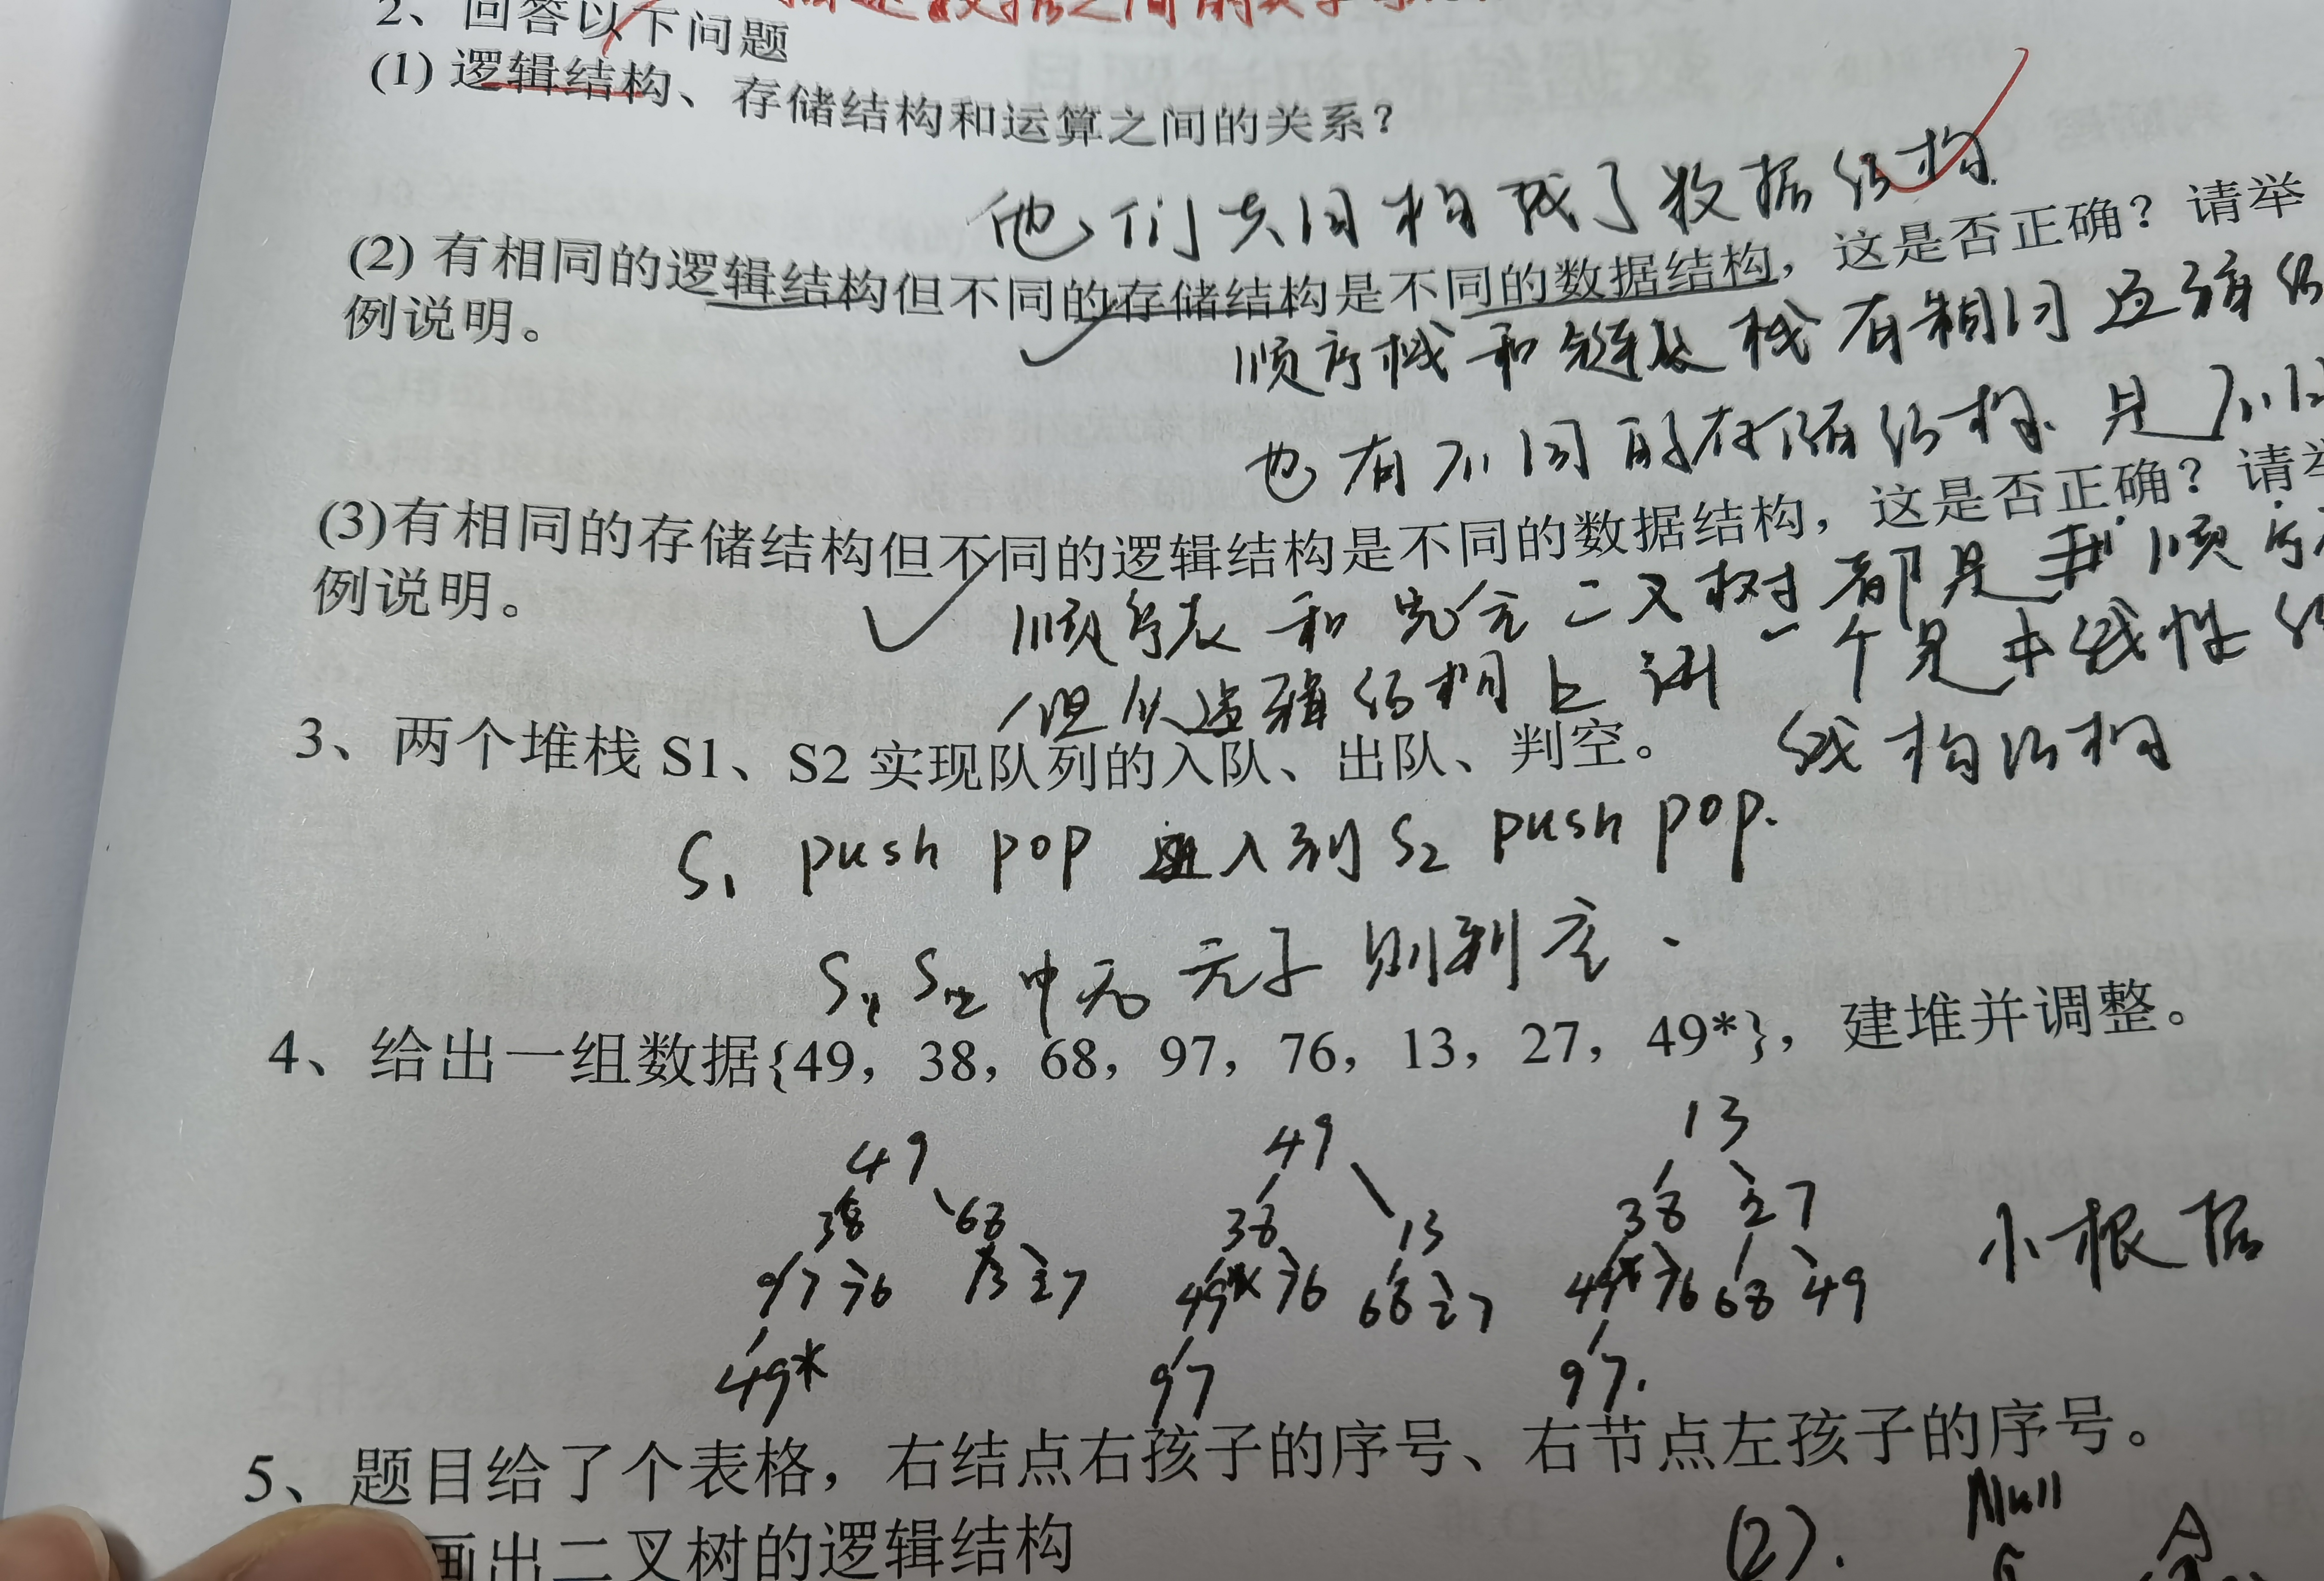 2、回答以下问题
(1) 逻辑结构、存储结构和运算之间的关系？
他们共同构成了数据结构
(2) 有相同的逻辑结构但不同的存储结构是不同的数据结构，这是否正确？请举
例说明。
顺序栈和链栈有相同逻辑结
也有不同的存储结构. 是不同
(3)有相同的存储结构但不同的逻辑结构是不同的数据结构，这是否正确？请举
例说明。
顺序表和完全二叉树都是顺序
但从逻辑结构上讲一个是线性结
3、两个堆栈 S1、S2 实现队列的入队、出队、判空。
结构
S1 push pop 进入到 S2 push pop.
S1, S2 中无元子则判空.
4、给出一组数据{49，38，68，97，76，13，27，49*}，建堆并调整。
49 49 13
38 68 38 13 38 27 小根
97 76 13 27 49* 76 68 27 49* 76 68 49
49* 97 97.
5、题目给了个表格，右结点右孩子的序号、右节点左孩子的序号。
画出二叉树的逻辑结构
(2). Null A